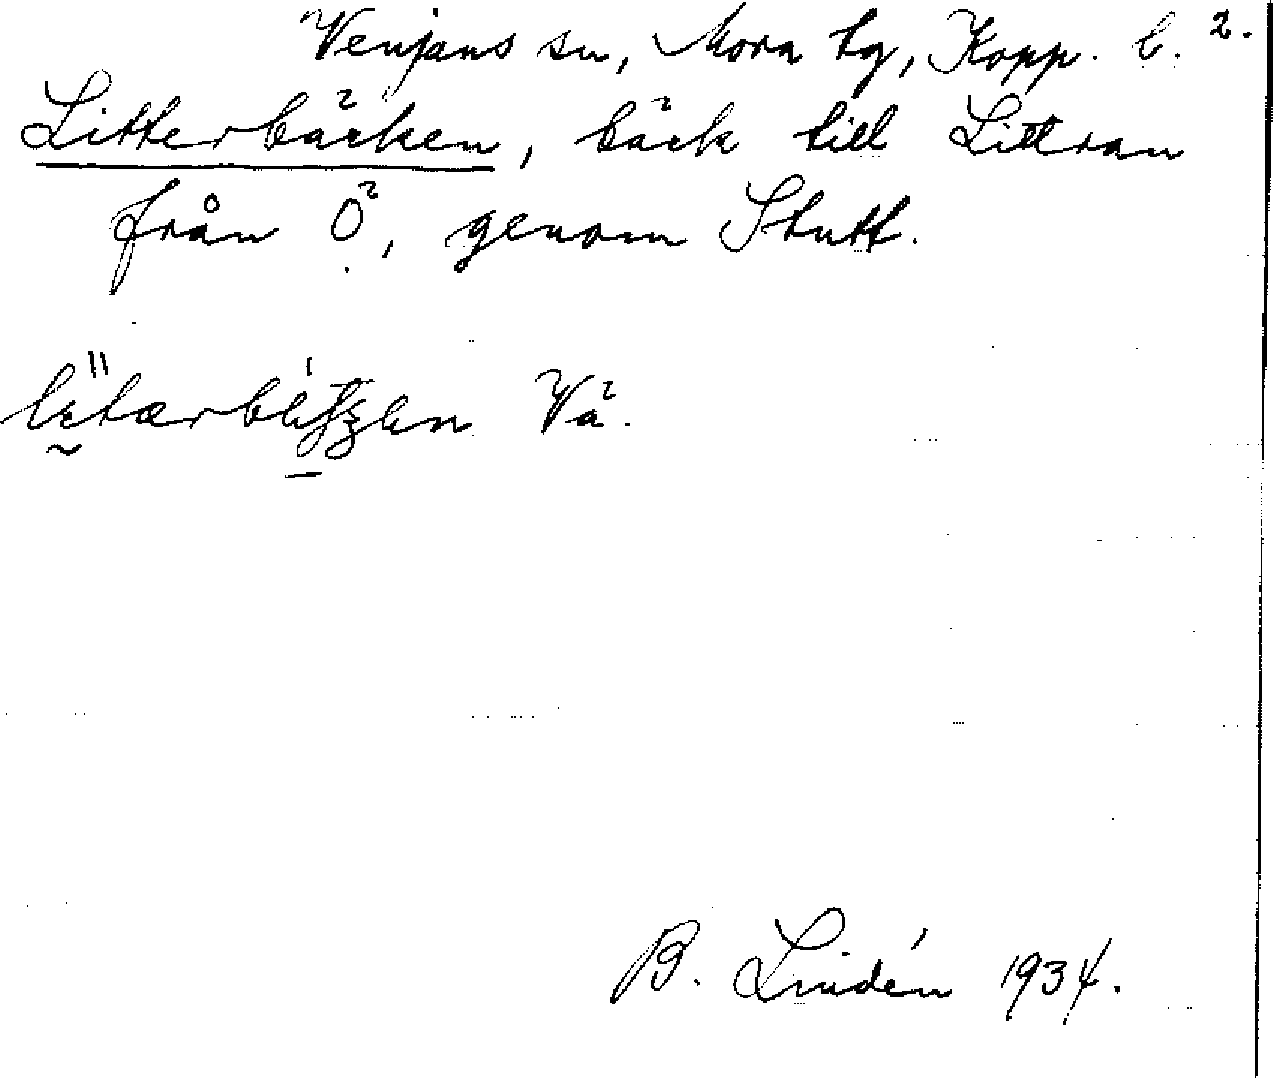 Venjans sn, Mora tg, Kopp. l. 2.
Litterbäcken, bäck till Littran
från Ö, genom Stutt.
Vä.
B. Lindén 1934.